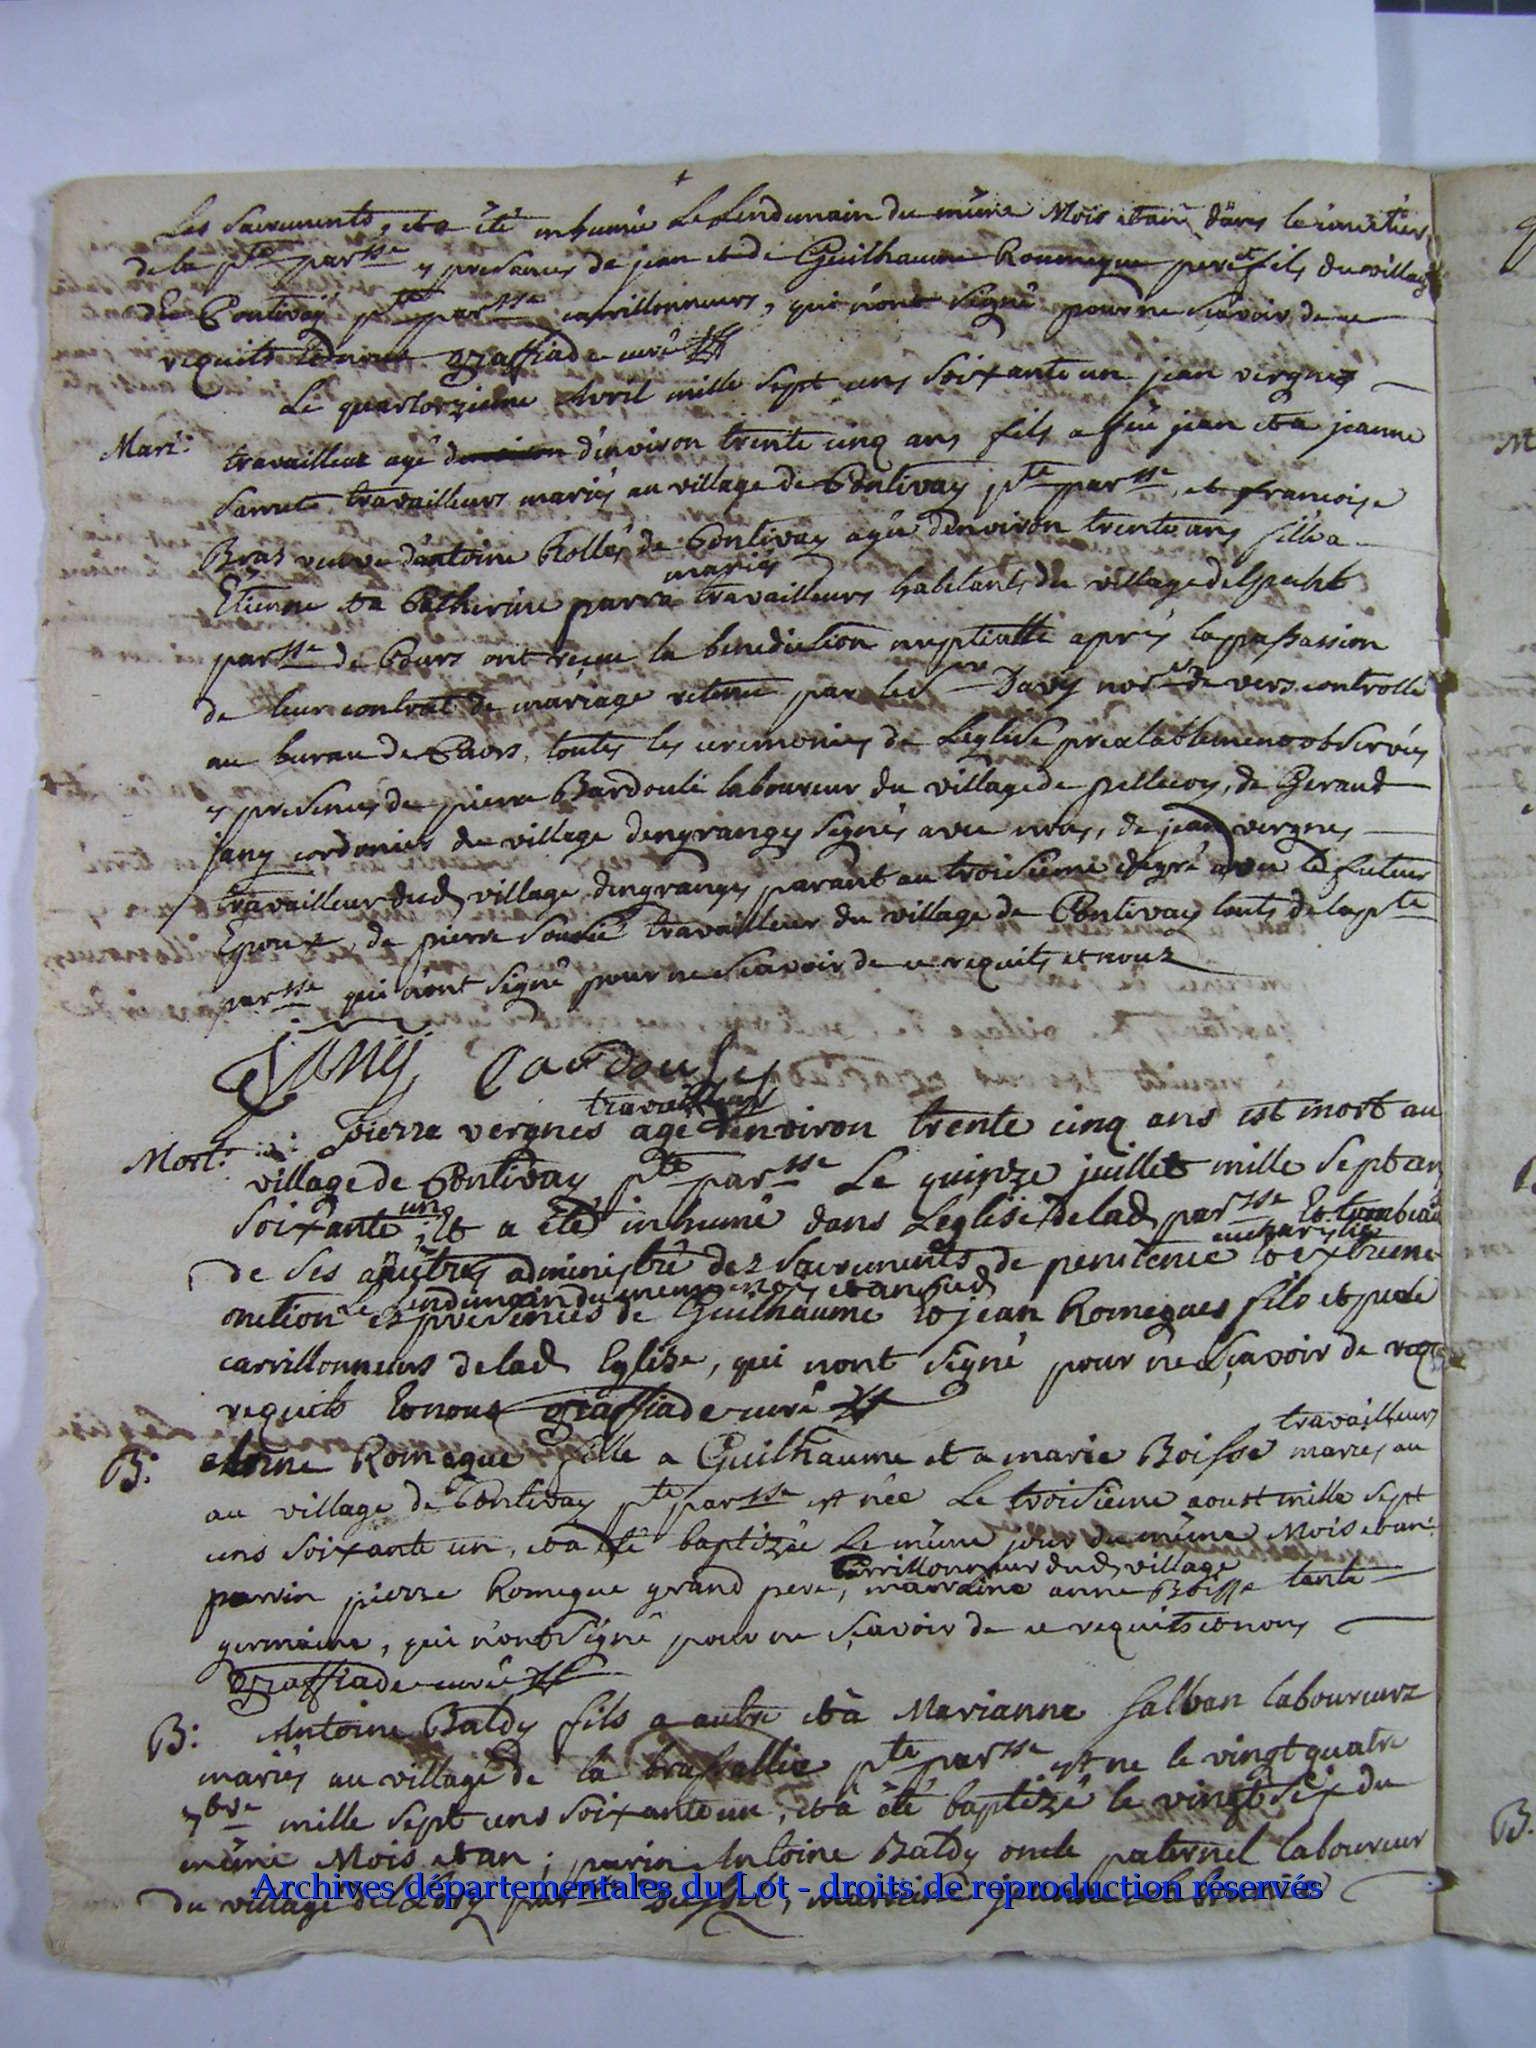 Les Sacrements, et a été inhumée Le Lendemain du même Mois et an dans le cimetiere
de la pte parsse es presances de jean et de Guilhaume Roumegue pere et fils du village
de Pontivay pte parsse carrillonneurs, qui n'ont signé pour ne scavoir de ce
requits et nous graffiade curé
Le quartorzieme Avril mille sept cens soixante un jean vergnes
Mari:
travailleur agé d'environ trente cinq ans fils a feu jean et a jeanne
travailleurs mariés au village de Pontivay pte parsse, et francoise
Bras veuve d'antoine Rollés de Pontivay agée d'environ trente ans fille a
mariés
Etienne et a Catherine parra travailleurs habitants du village
parsse de Cours ont reçeu la benediction nuptialle aprés la passassion
de leur contrat de mariage retenu par le Sr Davy nore de vers controllé
au bureau de Caors, toutes les ceremonies de L'eglise prealablement observées
es presences de pierre Bardoulé laboureur du village de pellecoy, de Geraud
jany cordonier du village d'engranges signés avec nous, de jean vergnes
travailleur dud village d'engranges parant au troisieme degré avec le futur
Epoux, de pierre travailleur du village de Pontivay touts de la pte
parsse qui n'ont signé pour ne scavoir de ce requits et nous
Jany
travailleur
Mort: pierre vergnes age d'environ trente cinq ans est mort au
village de Pontivay pte parsse Le quinze juillet mille sept cen
un
soixante, Et a été inhumé dans L'eglise de lad parsse Et tombeau
de ses ancetres administré des Sacrements de penitence et extreme
le lendemain du meme mois et an sud
onction es presences de Guilhaume et jean Romegues fils et pere
carrillonneurs de lad Eglise, qui nont signé pour ne scavoir de
requits et nous graffiade curé
travailleurs
B: anne Romegue fille a Guilhaume et a marie Boisse mariés au
au village de Pontivay pte parsse est née Le troisieme aoust mille sept
cens soixante un, et a été baptizée Le même jour du même Mois et an:
Carrillonneur dud village
parrin pierre Romegue grand pere, marraine anne Boisse tante
germaine, qui n'ont signé pour ne scavoir de ce requits et nous
graffiade curé
B: Antoine Baldy fils a autre et à Marianne Salban laboureurs
mariés au village de la brassallie pte parsse est né le vingt quatre
7bre mille sept cens soixante un, et à été baptizé le vingt six du
même Mois et an; parin Antoine Baldy oncle paternel laboureur
du village
Archives départementales du Lot - droits de reproduction réservés